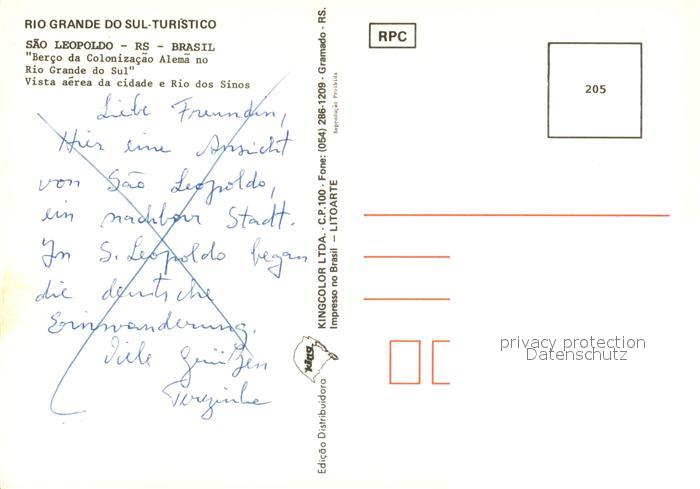 RIO GRANDE DO SUL-TURÍSTICO
SÃO LEOPOLDO - RS - BRASIL
"Berço da Colonização Alemã no
Rio Grande do Sul"
Vista aérea da cidade e Rio dos Sinos
Liebe Freundin,
Hier eine Ansicht
von São Leopoldo,
ein nachbar Stadt.
In S. Leopoldo began
die deutsche
Einwanderung.
Viele Grüßen
Terezinha
Edição Distribuidora
King
KINGCOLOR LTDA. - C.P. 100 - Fone: (054) 286-1209 - Gramado - RS.
Impresso no Brasil – LITOARTE
Reprodução Proibida
RPC
205
privacy protection
Datenschutz